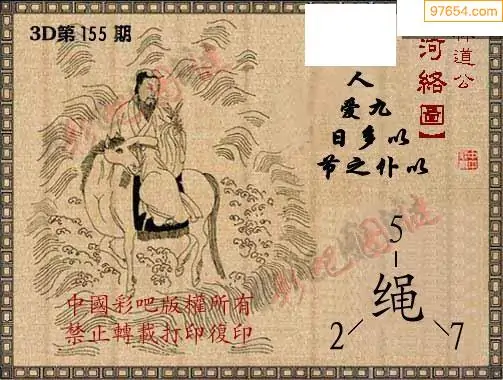 97654.com
3D第 155 期
道公
河絡圖】
人
爱九
日多以
节之仆以
5
绳
2 7
彩吧圖迷
彩吧圖迷
中國彩吧版權所有
禁止轉載打印復印